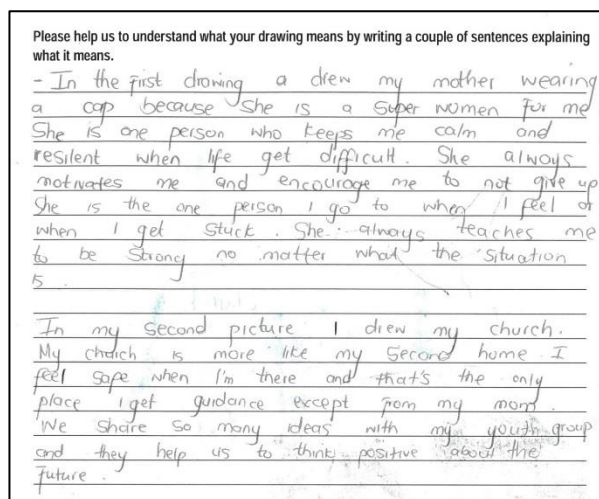 Please help us to understand what your drawing means by writing a couple of sentences explaining
what it means.
- In the first drawing a drew my mother wearing
a cap because she is a super women for me
She is one person who keeps me calm and
resilent when life get difficult. She always
motivates me and encourage me to not give up
She is the one person I go to when I feel or
when I get stuck. She always teaches me
to be strong no matter what the situation
is.
In my second picture I drew my church.
My church is more like my second home. I
feel safe when I'm there and that's the only
place I get guidance except from my mom.
We share so many ideas with my youth group
and they help us to think positive about the
future.